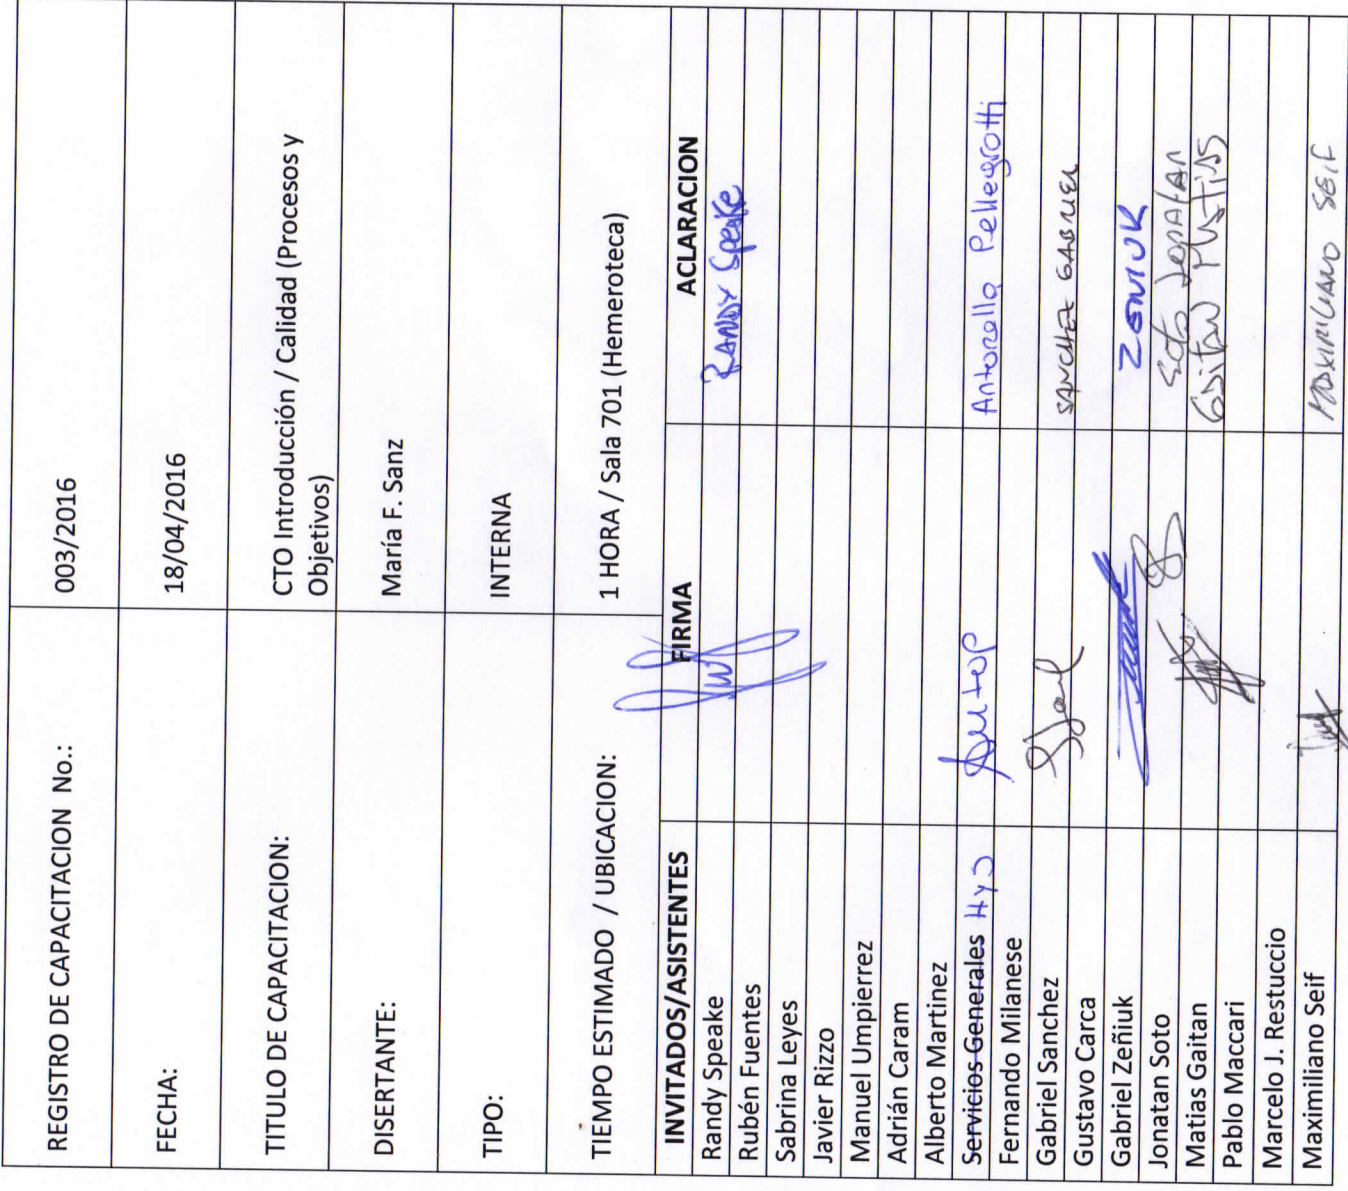 REGISTRO DE CAPACITACION No.: 003/2016
FECHA: 18/04/2016
TITULO DE CAPACITACION: CTO Introducción / Calidad (Procesos y
Objetivos)
DISERTANTE: María F. Sanz
TIPO: INTERNA
TIEMPO ESTIMADO / UBICACION: 1 HORA / Sala 701 (Hemeroteca)
INVITADOS/ASISTENTES FIRMA ACLARACION
Randy Speake RANDY Speake
Rubén Fuentes
Sabrina Leyes
Javier Rizzo
Manuel Umpierrez
Adrián Caram
Alberto Martinez
Servicios Generales HyS Antonella Pellegrotti
Fernando Milanese
Gabriel Sanchez SANCHEZ GABRIEL
Gustavo Carca
Gabriel Zeñiuk ZEÑIUK
Jonatan Soto Soto Jonatan
Matias Gaitan Gaitan Matias
Pablo Maccari
Marcelo J. Restuccio
Maximiliano Seif MAXIMILIANO SEIF